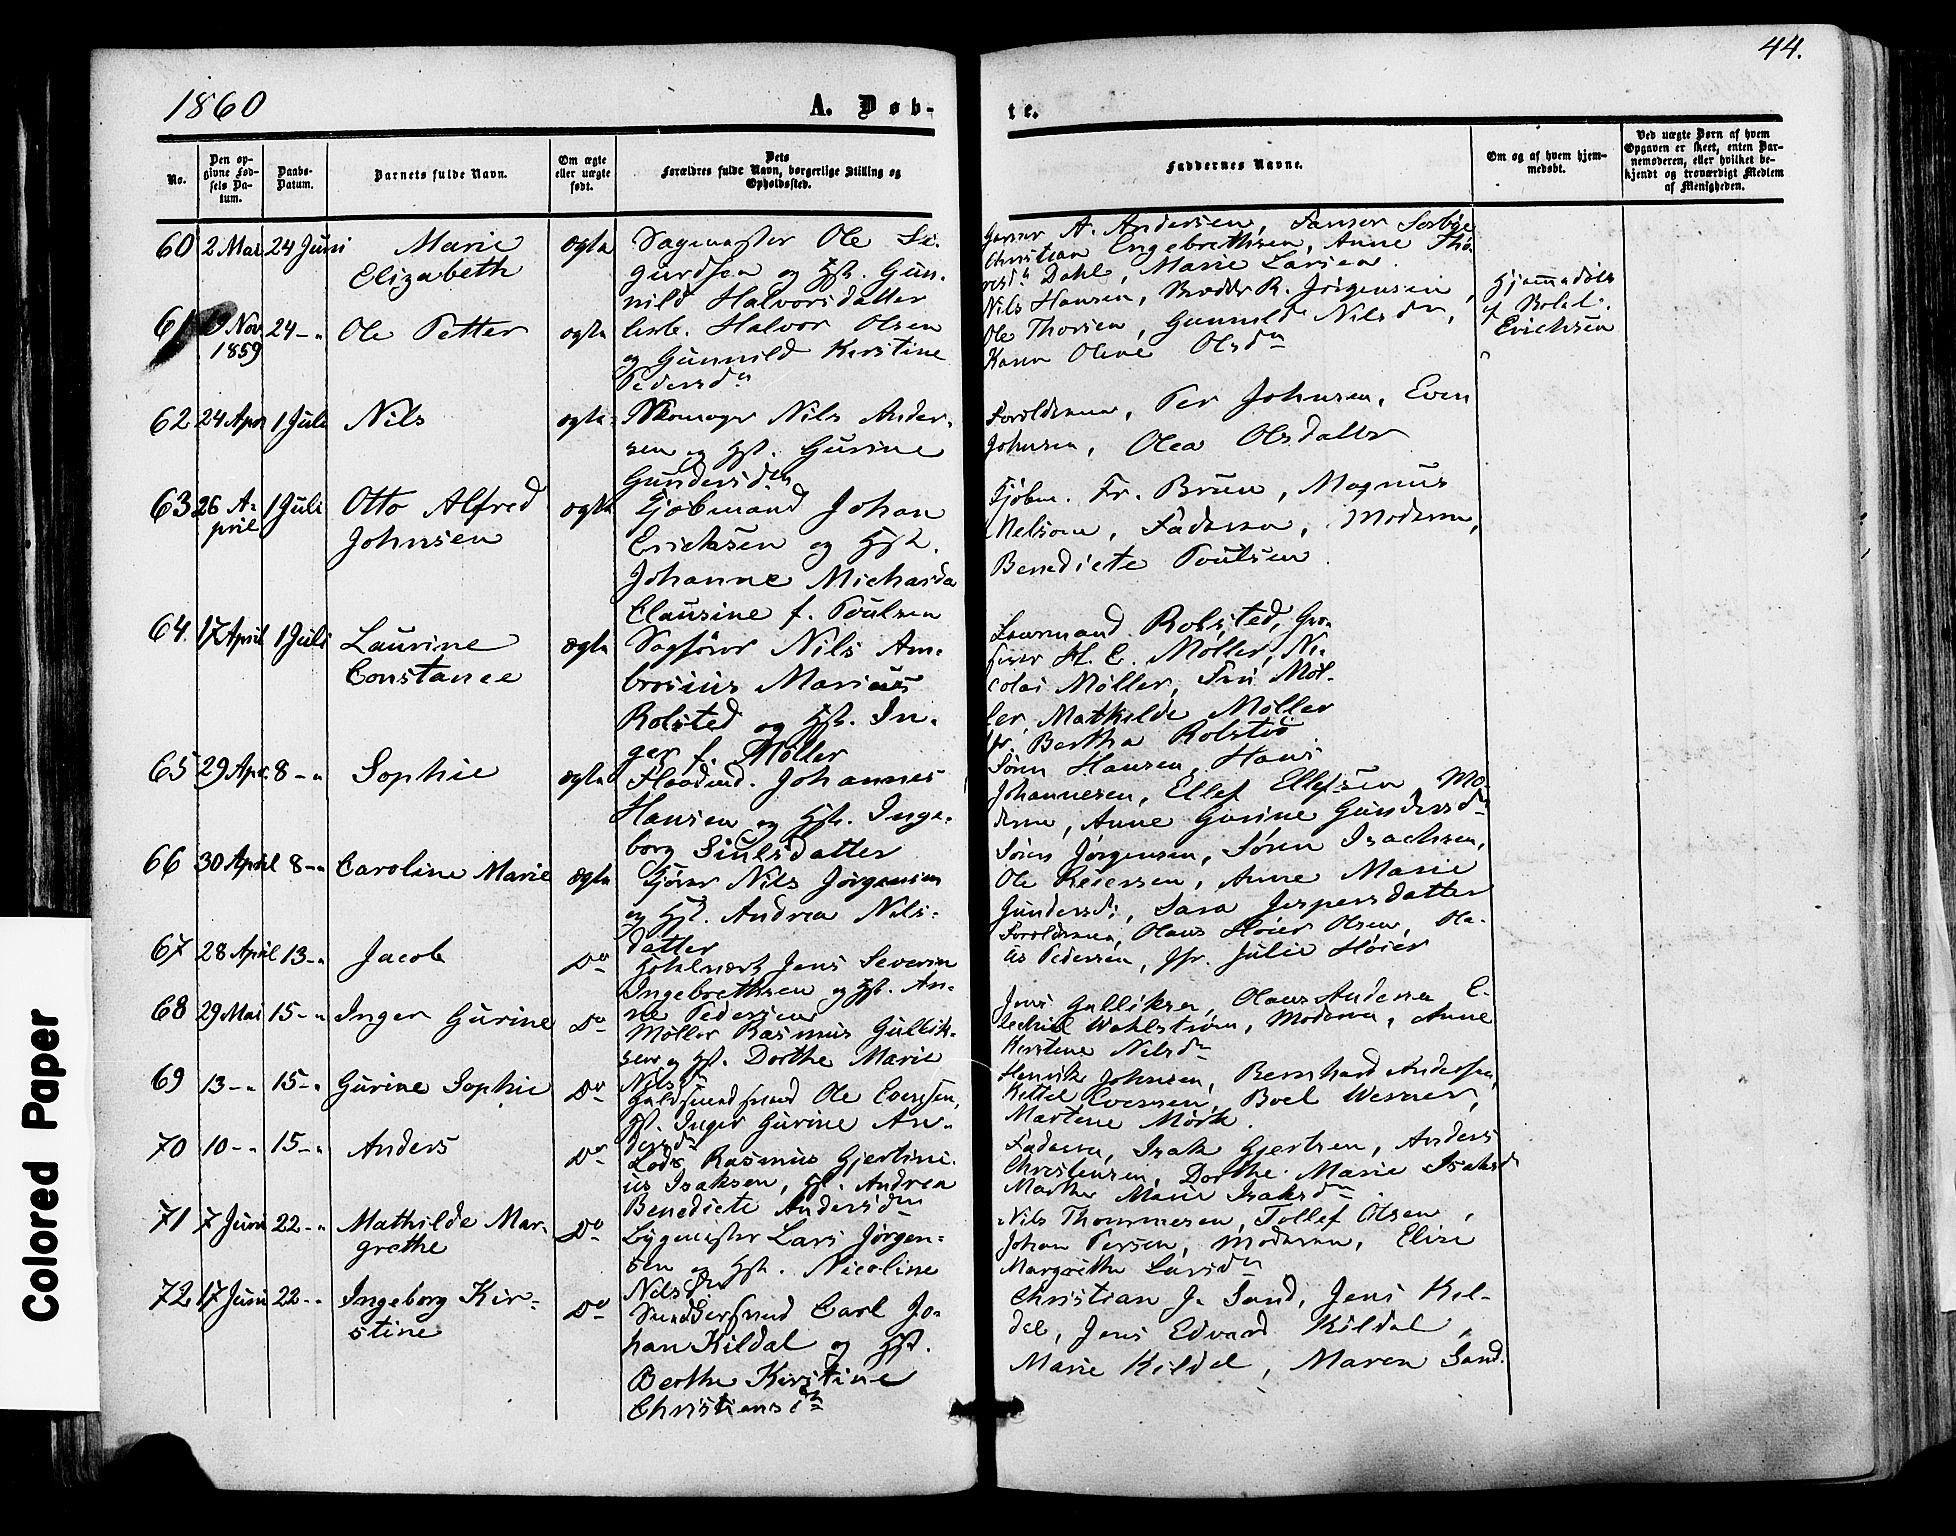 1860
A. Døb-
te.
44.
No.
Den op-
givne Fød-
sels Da-
tum.
Daabs-
Datum.
Barnets fulde Navn.
Om ægte
eller uægte
født.
Dets
Forældres fulde Navn, borgerlige Stilling og
Opholdssted.
Faddernes Navne.
Om og af hvem hjem-
medøbt.
Ved uægte Børn af hvem
Opgaven er skeet, enten Bar-
nemoderen, eller hvilket be-
kjendt og troværdigt Medlem
af Menigheden.
60 2 Mai 24 Juni Marie
Elizabeth
ægte
Sagmester Ole Si-
gurdsen og Hst. Gun-
nild Halvorsdatter
A. Andersen,
Christian Engebrethsen, Anne Tho-
resdr Dahl, Marie Larsen.
61 Nov
1859
24 - " Ole Petter
ægte
Arb. Halvor Olsen
og Gunnild Kirstine
Pedersdr
Nils Hansen, R. Jørgensen,
Ole Thorsen, Gunnild Nilsdr,
Karen Oline Olsdr
Hjemmedøbt
af Bolet
Erichsen
62 24 Apr 1 Juli Nils
ægte
Skomager Nils Ander-
sen og Hst. Gurine
Gundersdr
Forældrene, Per Johnsen, Even
Johnsen, Olea Olsdatter
63 26 A-
pril
1 Juli Otto Alfred
Johnsen
ægte
Kjøbmand Johan
Erichsen og Hst.
Johanne Micharda
Clausine f. Poulsen
Kjøbm. Fr. Bruun, Magnus
Nelson, Faderen, Moderen,
Benedicte Poulsen.
64. 17 April 1 Juli Laurine
Constance
ægte
Sagfører Nils Am-
brosius Marius
Rolsted og Hst. In-
ger f. Møller
Rolsted, Gros-
serer H. C. Møller, Ni-
colai Møller, Fru Møl-
ler, Mathilde Møller
Bertha Rolsted
65 29 Apr. 8 - " Sophie
ægte
Johannes
Hansen og Hst. Inge-
borg Siulsdatter
Søren Hansen, Hans
Johannesen, Ellef Ellefsen, Mo-
deren, Anne Gurine Gundersdr
66 30 April 8 - " Caroline Marie
ægte
Kjører Nils Jørgensen
og Hst. Andrea Nils-
datter
Søren Jørgensen, Søren Isachsen,
Ole Reiersen, Anne Marie
Gundersdr, Sara Jespersdatter
67 28 April 13 - " Jacob
Do
Jens Severin
Ingebrethsen og Hst. An-
ne Pedersen
Forældrene, Olaus Høier Olsen, Ola-
us Pedersen, Jfr. Julie Høier
68 29 Mai 15 - " Inger Gurine
Do
Møller Rasmus Gullik-
sen og Hst. Dorthe Marie
Nilsdr
Jens Gulliksen, Olaus Andersen E-
Wahlstrøm, Moderen, Anne
Kirstine Nilsdr
69 13 - " 15 - " Gurine Sophie
Do
Guldsmedsvend Ole Evensen,
Hst. Inger Gurine An-
dersdr
Henrik Johnsen, Bernhard Andersen,
Kittel Evensen, Boel Werner,
Martine Mørk.
70 10 - " 15 - " Anders
Do
Lods Rasmus Gjertini-
us Isaksen, Hst. Andrea
Benedicte Andersdr
Faderen, Isak Gjertsen, Anders
Christensen, Dorthe Marie Isaksdr
Marthe Marie Isaksdr
71 7 Juni 22 - " Mathilde Mar-
grethe
Do
Bygmester Lars Jørgen-
sen og Hst. Nicoline
Nilsdr
Nils Thommesen, Tollef Olsen,
Johan Persen, Moderen, Elise
Margrethe Larsdr
72 17 Juni 22 - " Ingeborg Kir-
stine
Do
Carl Jo-
han Kildal og Hst.
Berthe Kirstine
Christiensdr
Christian J. Sand, Jens Kil-
dal, Jens Edvard Kildal,
Marie Kildal, Maren Sand.
Colored Paper